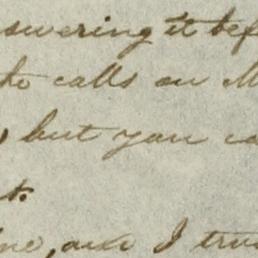 swering it bef
he calls on M
but you ca
t.
ne, and I trus